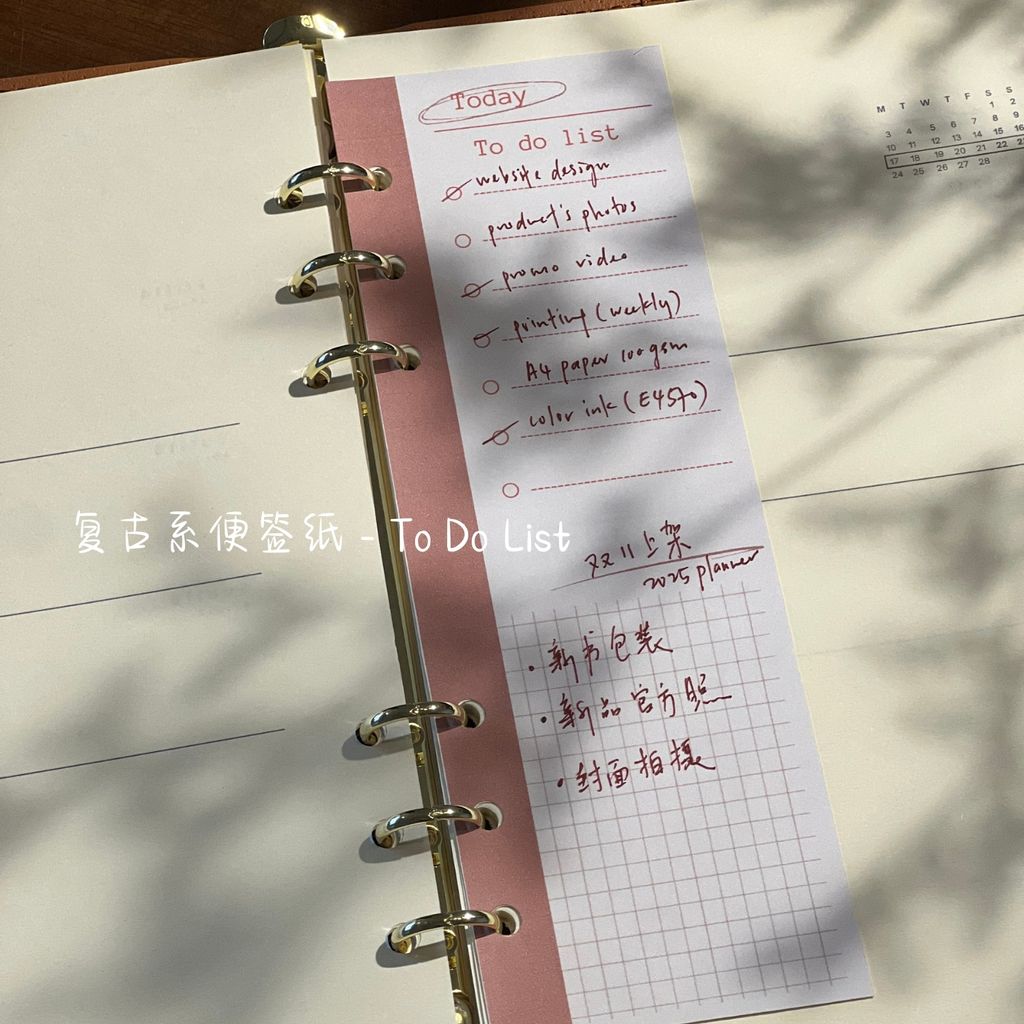 Today
To do list
website design
product's photos
promo video
printing (weekly)
A4 paper 100gsm
color ink (E4570)
复古系便签纸 - To Do List
双11上架
2025 planner
• 新书包装
• 新品官方照
• 封面拍摄
M T W T F S S
1 2
3 4 5 6 7 8 9
10 11 12 13 14 15 16
17 18 19 20 21 22
24 25 26 27 28